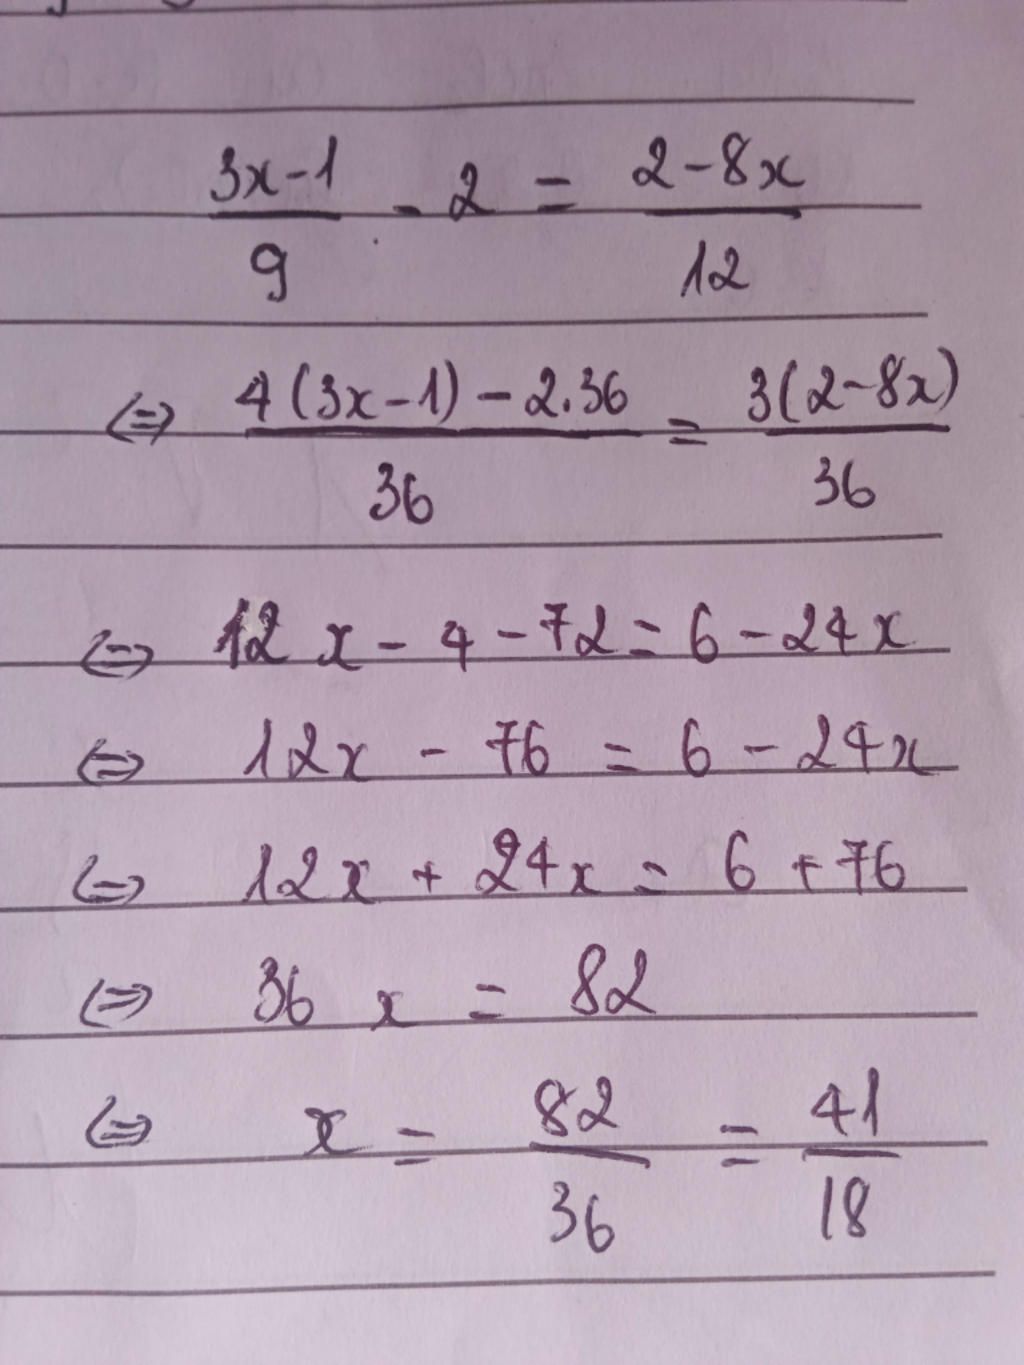 3x-1/9 - 2 = 2-8x/12
⇔ 4(3x-1)-2.36/36 = 3(2-8x)/36
⇔ 12x - 4 - 72 = 6 - 24x
⇔ 12x - 76 = 6 - 24x
⇔ 12x + 24x = 6 + 76
⇔ 36x = 82
⇔ x = 82/36 = 41/18